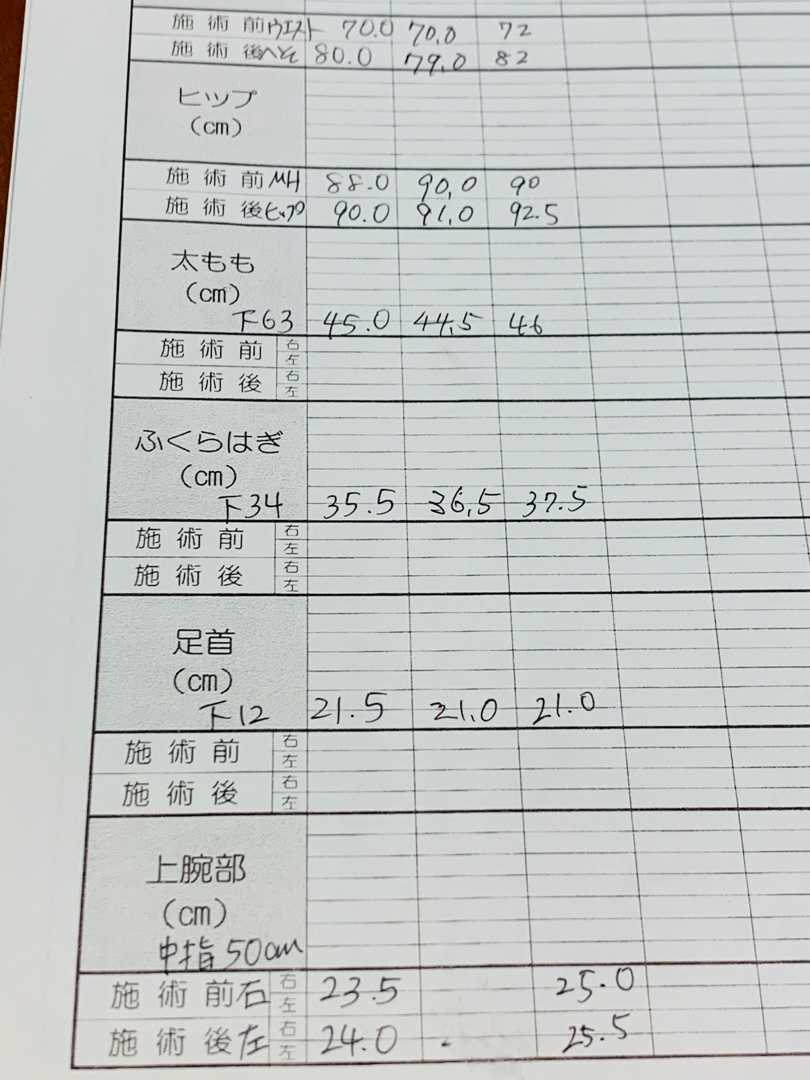 施術前ウエスト 70.0 70.0 72
施術後へそ 80.0 79.0 82
ヒップ
(cm)
施術前MH 88.0 90.0 90
施術後ヒップ 90.0 91.0 92.5
太もも
(cm)
下63 45.0 44.5 46
施術前 右
左
施術後 右
左
ふくらはぎ
(cm)
下34 35.5 36.5 37.5
施術前 右
左
施術後 右
左
足首
(cm)
下12 21.5 21.0 21.0
施術前 右
左
施術後 右
左
上腕部
(cm)
中指50cm
施術前右 右 23.5 25.0
左
施術後左 右 24.0 25.5
左